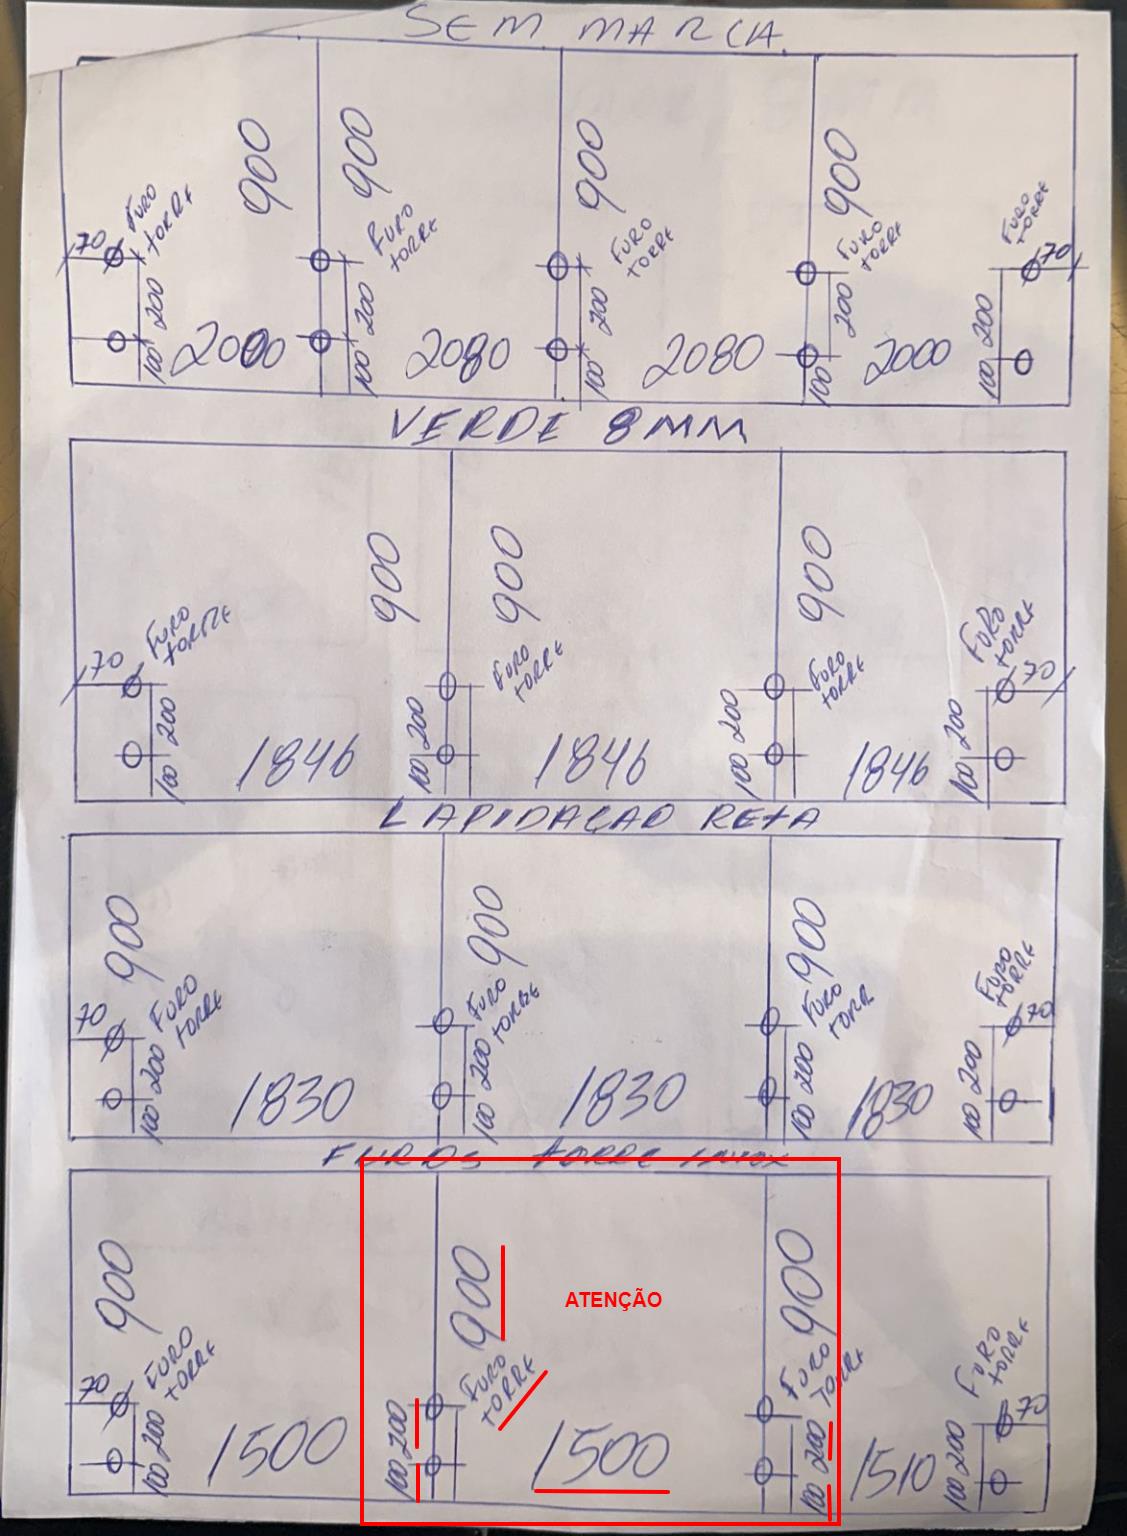 SEM MARCA
900
900
900
900
70
FURO
TORRE
FURO
TORRE
FURO
TORRE
FURO
TORRE
FURO
TORRE
70
100 200
2000
100 200
2080
100 200
2080
100 200
2000
100 200
VERDE 8MM
900
900
900
70
FURO
TORRE
FURO
TORRE
FURO
TORRE
FURO
TORRE
70
100 200
1846
100 200
1846
100 200
1846
100 200
LAPIDAÇAO RETA
900
900
900
70
FURO
TORRE
FURO
TORRE
FURO
TORR
FURO
TORRE
70
100 200
1830
100 200
1830
100 200
1830
100 200
FUROS TORRE INOX
900
900
ATENÇÃO
900
70
FURO
TORRE
FURO
TORRE
FURO
TORRE
FURO
TORRE
70
100 200
1500
100 200
1500
100 200
1510
100 200